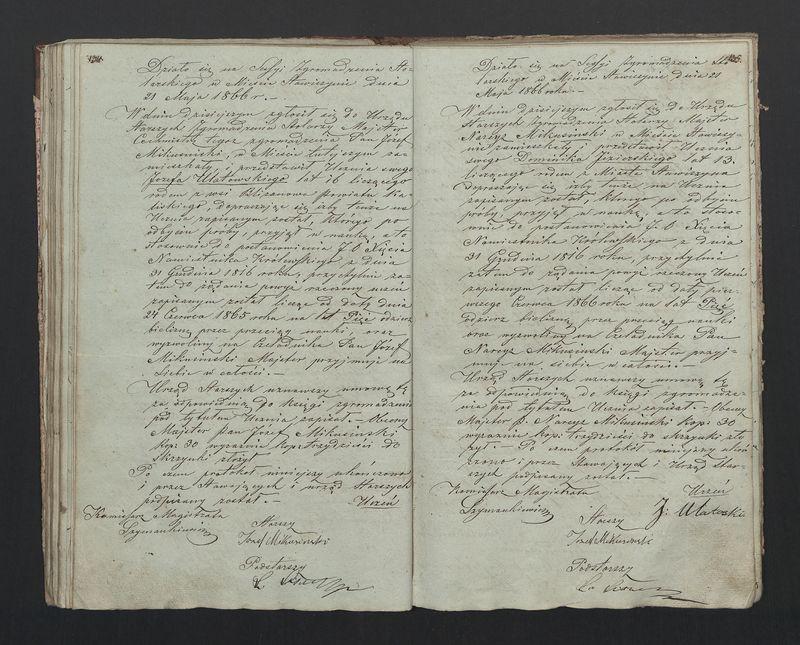 134.
Działo się na Sessyi Zgromadzenia Sto-
larskiego w Mieście Stawiszynie dnia
21 Maja 1866 r. —
W dniu dzisiejszym zgłosił się do Urzędu
Starszych Zgromadzenia Stolarzy Majster
Cechmistrz tegoż zgromadzenia Pan Józef
Mikusinski, w Mieście tutejszym za-
mieszkały i przedstawił Ucznia swego
Józefa lat 16 liczącego
rodem z wsi Blizanowa Powiatu Ka-
liskiego, dopraszając się iżby tenże na
Ucznia zapisanym został, którego po
odbyciu próby, przyjął w naukę, a to
stosownie do postanowienia J. O. Xięcia
Namiestnika Królewskiego z dnia
31 Grudnia 1816 roku, przychylnie za-
tem do żądania powyż rzeczony uczeń
zapisanym został licząc od daty dnia
24 Czerwca 1865 roku na lat Pięć odzież
bieliznę przez przeciąg nauki, oraz
wyzwoliny na Czeladnika Pan Józef
Mikusinski Majster przyjmuje na
siebie w całości. —
Urząd Starszych uznawszy umowę tę
za odpowiednią do Księgi zgromadzenia
pod tytułem Ucznia zapisał. — Obecny
Majster Pan Józef Mikusinski
Kop: 30 wyraźnie kop: trzydzieści do
skrzynki złożył
Po czem protokół niniejszy ukończono
i przez Stawających i urząd Starszych
podpisany został. —
Uczeń
Komisarz Magistratu
Szymankiewicz
Starszy
Józef Mikusinski
Podstarszy
135.
Działo się na Sessyi Zgromadzenia Sto-
larskiego w Mieście Stawiszynie dnia 21
Maja 1866 roku. —
W dniu dzisiejszym zgłosił się do Urzędu
Starszych Zgromadzenia Stolarzy Majster
Narcyz Mikusinski w Mieście Stawiszy-
nie zamieszkały i przedstawił Ucznia
swego Dominika Jezierskiego lat 13
liczącego rodem z Miasta Stawiszyna
dopraszając się iżby tenże na Ucznia
zapisanym został, którego po odbyciu
próby, przyjął w naukę, a to stosow-
nie do postanowienia J. O. Xięcia
Namiestnika Królewskiego z dnia
31 Grudnia 1816 roku, przychylnie
zatem do żądania powyż rzeczony Uczeń
zapisanym został licząc od daty pier-
wszego Czerwca 1866 roku na lat Pięć
odzież bieliznę przez przeciąg nauki
oraz wyzwoliny na Czeladnika Pan
Narcyz Mikusinski Majster przyj-
muje na siebie w całości. —
Urząd Starszych uznawszy umowę tę
za odpowiednią do Księgi zgromadze-
nia pod tytułem Ucznia zapisał. — Obecny
Majster p. Narcyz Mikusinski Kop: 30
wyraźnie kop: trzydzieści do skrzynki zło-
żył. — Po czem protokół niniejszy ukoń-
czono i przez Stawających i Urząd Star-
szych podpisany został. —
Komisarz Magistratu
Szymankiewicz
Uczeń
Starszy
Józef Mikusinski
Podstarszy